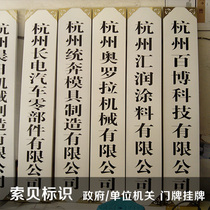 杭州百博科技有限公司
杭州汇润涂料有限公司
杭州奥罗拉机械有限公司
杭州统奔模具制造有限公司
杭州长电汽车零部件有限公司
索贝标识
政府/单位机关 门牌挂牌